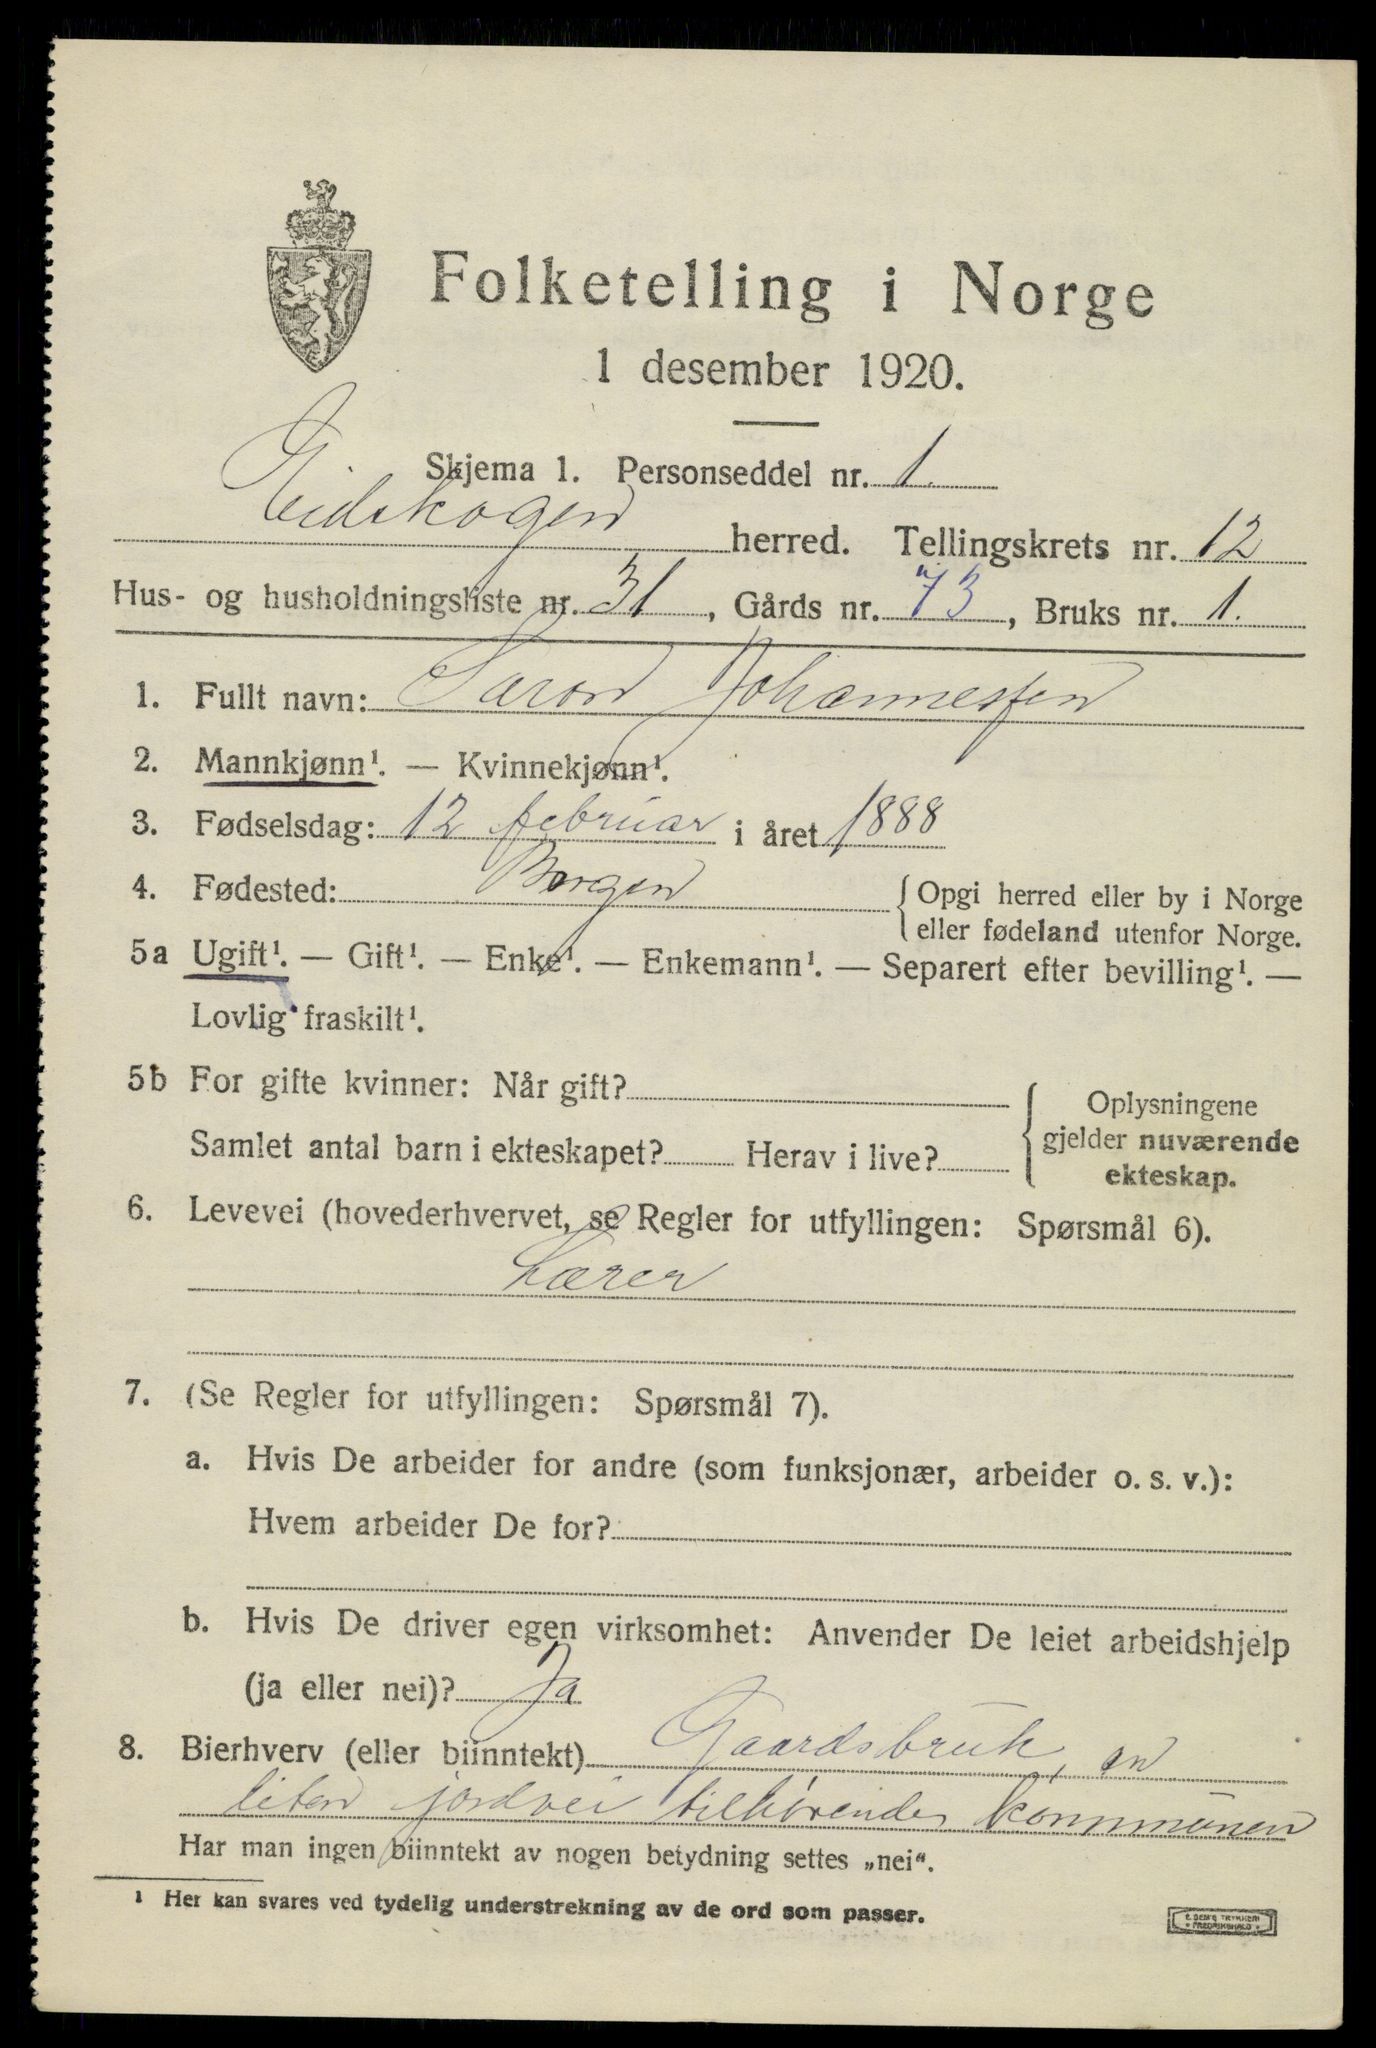 Folketelling i Norge
1 desember 1920.
Skjema 1. Personseddel nr. 1.
Eidskogen herred. Tellingskrets nr. 12
Hus- og husholdningsliste nr. 31, Gårds nr. 73, Bruks nr. 1.
1. Fullt navn: Saron Johannessen
2. Mannkjønn¹. — Kvinnekjønn¹.
3. Fødselsdag: 12 februar i året 1888
4. Fødested: Bergen
Opgi herred eller by i Norge
eller fødeland utenfor Norge.
5a Ugift¹. — Gift¹. — Enke¹. — Enkemann¹. — Separert efter bevilling¹. —
Lovlig fraskilt¹.
5b For gifte kvinner: Når gift?
Samlet antal barn i ekteskapet? Herav i live?
Oplysningene
gjelder nuværende
ekteskap.
6. Levevei (hovederhvervet, se Regler for utfyllingen: Spørsmål 6).
Lærer
7. (Se Regler for utfyllingen: Spørsmål 7).
a. Hvis De arbeider for andre (som funksjonær, arbeider o. s. v.):
Hvem arbeider De for?
b. Hvis De driver egen virksomhet: Anvender De leiet arbeidshjelp
(ja eller nei)? Ja
8. Bierhverv (eller biinntekt) Gaardsbruk, en
liten jordvei tilhørende kommunen
Har man ingen biinntekt av nogen betydning settes „nei“.
¹ Her kan svares ved tydelig understrekning av de ord som passer.
E. SEM'S TRYKKERI
FREDRIKSHALD